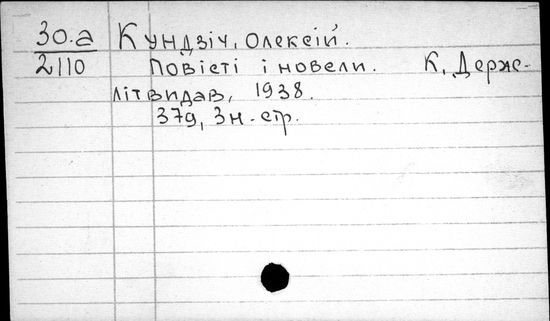 30.а Кундзіч, Олексій.
2110 Повісті і новели. К, Держ-
літвидав, 1938.
379, 3 н. стр.